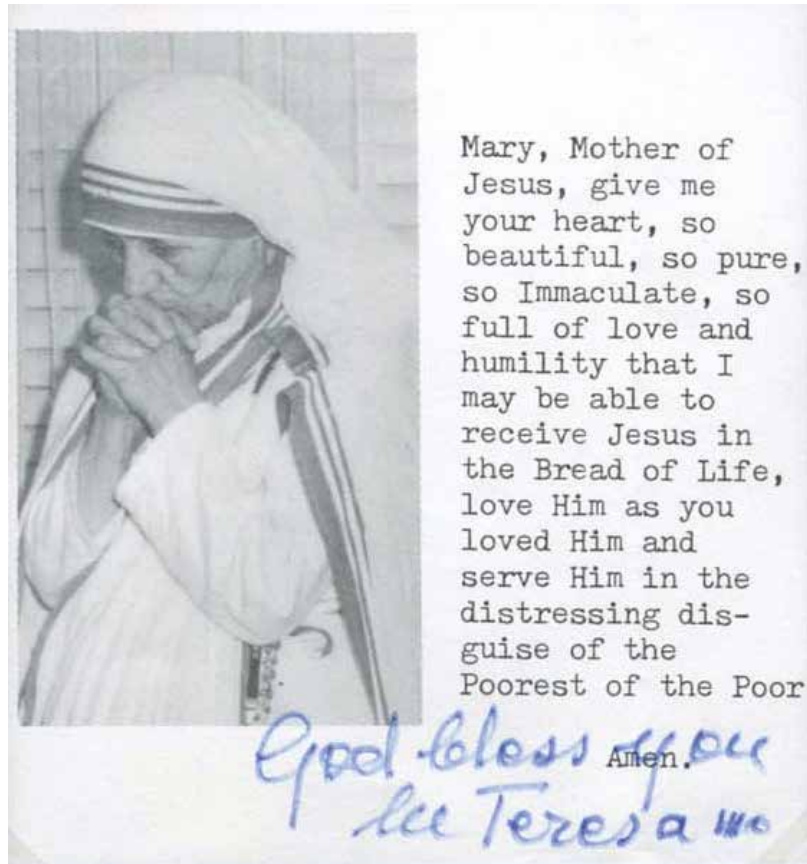 Mary, Mother of
Jesus, give me
your heart, so
beautiful, so pure,
so Immaculate, so
full of love and
humility that I
may be able to
receive Jesus in
the Bread of Life,
love Him as you
loved Him and
serve Him in the
distressing dis-
guise of the
Poorest of the Poor
Amen.
God bless you
Teresa mc